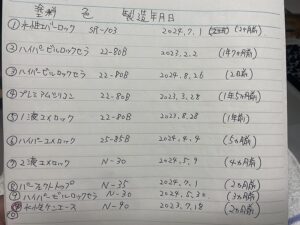 塗料 色 製造年月日
① 水性エバーロック SR-103 2024.7.1 (2ヶ月前)
② ハイパービルロックセラ 22-80B 2023.2.2 (1年7ヶ月前)
③ ハイパービルロックセラ 22-80B 2024.8.26 (2日前)
④ プレミアムシリコン 22-80B 2023.3.28 (1年5ヶ月前)
⑤ 1液エイロック 22-80B 2023.8.28 (1年前)
⑥ ハイパーエイロック 25-85B 2024.4.4 (5ヵ月前)
⑦ 2液エイロック N-30 2024.5.9 (4ヵ月前)
⑧ パーフェクトトップ N-35 2024.7.1 (2ヵ月前)
⑨ ハイパービルロックセラ N-30 2024.5.30 (3ヵ月前)
⑩ 水性ケンエース N-90 2023.7.18